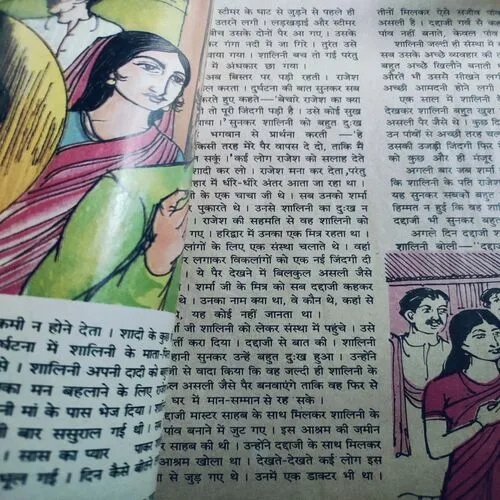 कमी न होने देता । शादी के कुछ
र्घटना में शालिनी के माता-पि
से । शालिनी अपनी दादी को ब
का मन बहलाने के लिए रा
नी मां के पास भेज दिया ।
ी बार ससुराल गई थी ।
। सास का प्यार पाकर
भूल गई । दिन कैसे बी
स्टीमर के घाट से जुड़ने से पहले ही
उतरने लगी । लड़खड़ाई और स्टीमर
बीच उसके दोनों पैर आ गए । उसके
कर गंगा नदी में जा गिरे । तुरंत उसे
गया । शालिनी बच तो गई परंतु
में अंधकार छा गया ।
अब बिस्तर पर पड़ी रहती । राजेश
ाल करता । दुर्घटना की बात सुनकर सब
करते हुए कहते—'बेचारे राजेश का क्या
ी तो पूरी जिंदगी पड़ी है । उसे कोई सुख
गया ।' सुनकर शालिनी को बहुत दुःख
भगवान से प्रार्थना करती—'हे
किसी तरह मेरे पैर वापस दे दो, ताकि मैं
न सकूं ।' कई लोग राजेश को सलाह देते
शादी कर लो । राजेश मना कर देता, परंतु
हार में धीरे-धीरे अंतर आता जा रहा था ।
ी के एक चाचा जी थे । सब उनको शर्मा
पुकारते थे । उनसे शालिनी का दुःख न
। राजेश की सहमति से वह शालिनी को
गए । हरिद्वार में उनका एक मित्र रहता था ।
लांगों के लिए एक संस्था चलाते थे । वहां
र लगाकर विकलांगों को एक नई जिंदगी दी
। ये पैर देखने में बिलकुल असली जैसे
। शर्मा जी के मित्र को सब दद्दाजी कहकर
थे । उनका नाम क्या था, वे कौन थे, कहां से
थे, यह कोई नहीं जानता था ।
र्मा जी शालिनी को लेकर संस्था में पहुंचे । उसे
र्ती करा दिया । दद्दाजी से बात की । शालिनी
हानी सुनकर उन्हें बहुत दुःख हुआ । उन्होंने
जी से वादा किया कि वह जल्दी ही शालिनी के
ल असली जैसे पैर बनवाएंगे ताकि वह फिर से
घर में मान-सम्मान से रह सके ।
दाजी मास्टर साहब के साथ मिलकर शालिनी के
पांव बनाने में जुट गए । इस आश्रम की जमीन
र साहब की थी । उन्होंने दद्दाजी के साथ मिलकर
आश्रम खोला था । देखते-देखते कई लोग इस
से जुड़ गए थे । उनमें एक डाक्टर भी था ।
तीनों मिलकर ऐसे सजीव पांव
असली है । दद्दाजी गर्व से क
पांव नहीं बनाते, केवल पांव
शालिनी जल्दी ही संस्था में
सब उसके अच्छे व्यवहार की
बहुत अच्छे खिलौने बनाती थी
औरतें भी उससे सीखने लग
अच्छी आमदनी होने लगी
एक साल में शालिनी
देखकर शालिनी बहुत खुश
असली पैर जैसे थे । कुछ
उन पांवों से अच्छी तरह चल
उसकी उजड़ी जिंदगी फिर
को कुछ और ही मंजूर
अगली बार जब शर्मा
कि शालिनी के पति राजेश
यह सुनकर सबको बहुत
हिम्मत न हुई कि वह शालि
दद्दाजी भी सुनकर बहुत
अगले दिन दद्दाजी
शालिनी बोली—"दद्दाजी